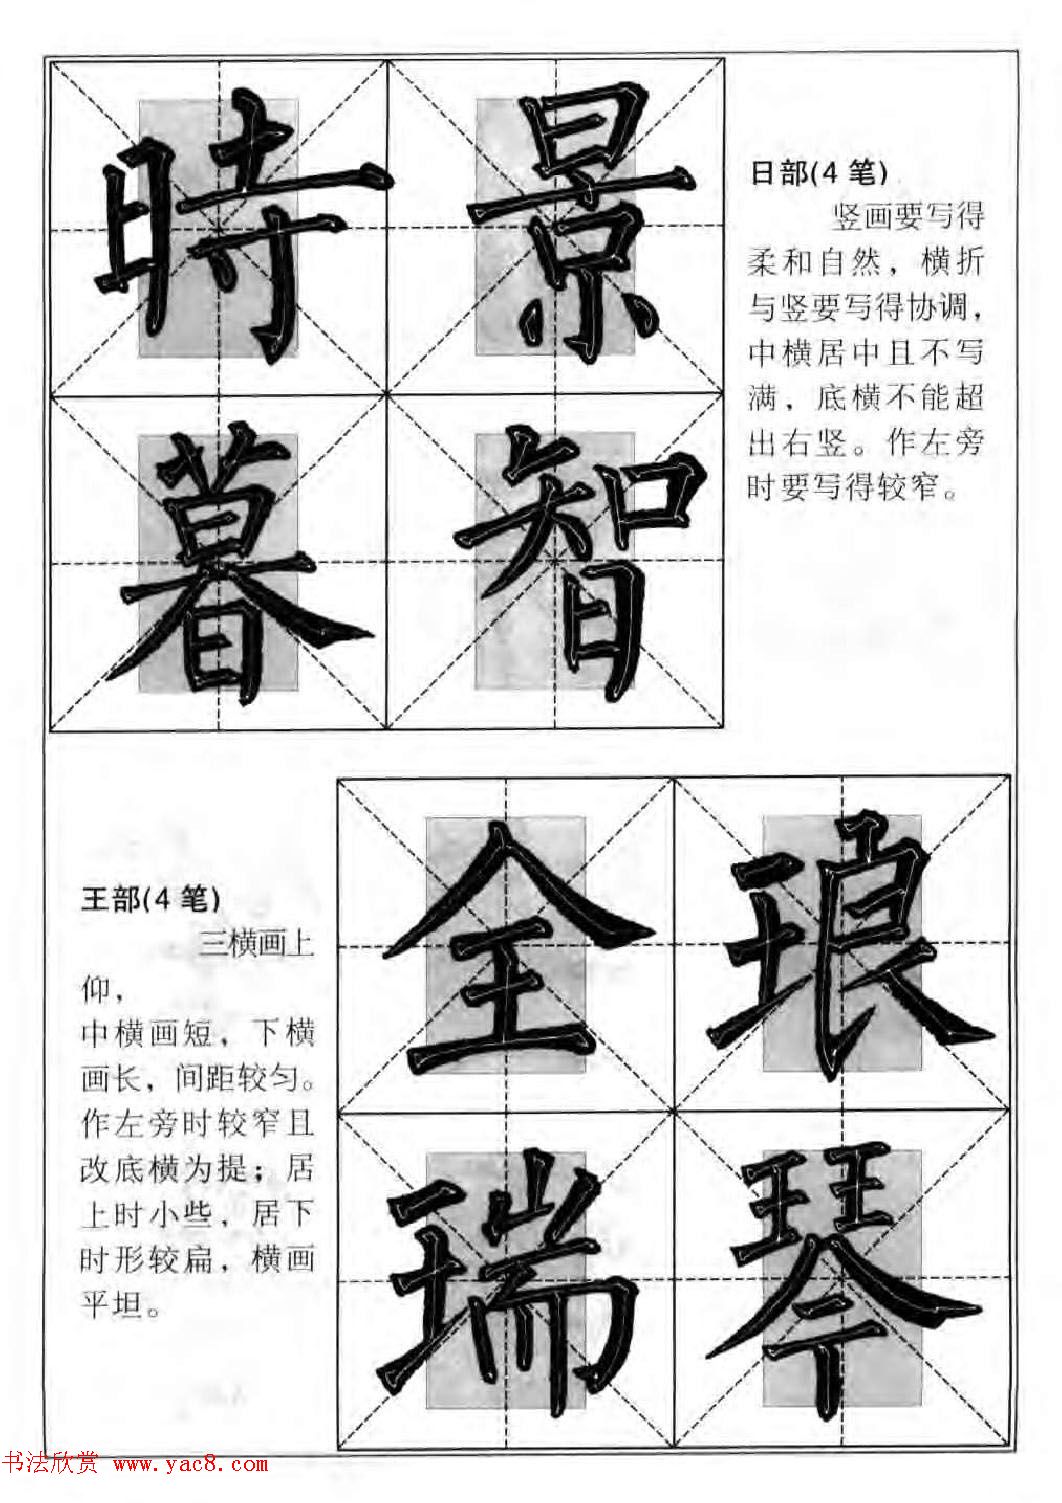 時景
暮智
日部(4笔)
竖画要写得
柔和自然，横折
与竖要写得协调，
中横居中且不写
满，底横不能超
出右竖。作左旁
时要写得较窄。
王部(4笔)
三横画上
仰，
中横画短，下横
画长，间距较匀。
作左旁时较窄且
改底横为提；居
上时小些，居下
时形较扁，横画
平坦。
全琅
瑞琴
书法欣赏 www.yac8.com